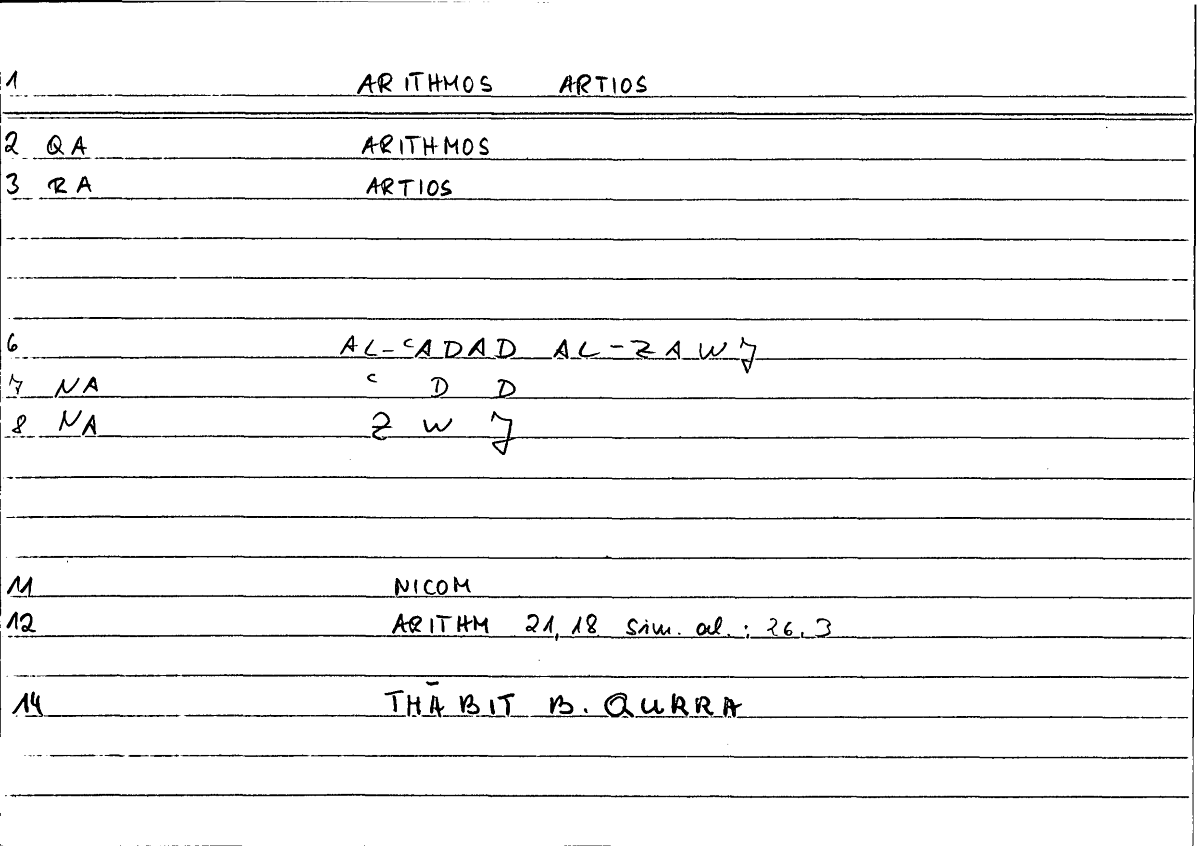 1 ARITHMOS ARTIOS
2 QA ARITHMOS
3 RA ARTIOS
6 AL-ʿADAD AL-ZAWJ
7 NA ʿ D D
8 NA Z W J
11 NICOM
12 ARITHM 21,18 sim. al.: 26,3
14 THĀBIT B. QURRA